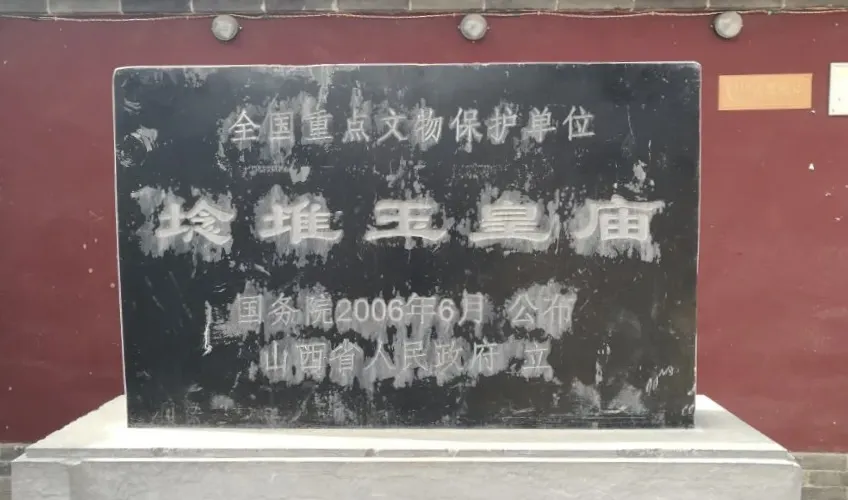 全国重点文物保护单位
埝堆玉皇庙
国务院2006年6月 公布
山西省人民政府 立